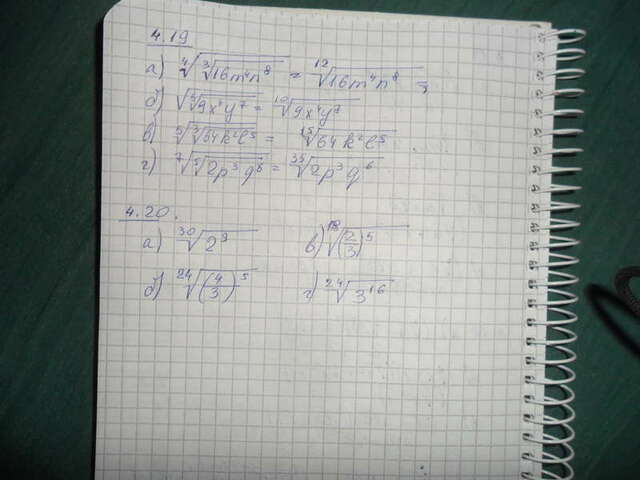 4.19
а) ⁴√∛16m⁴n⁸ = ¹²√16m⁴n⁸ ;
б) √⁵√9x⁴y⁷ = ¹⁰√9x⁴y⁷
в) ⁵√∛64k²l⁵ = ¹⁵√64k²l⁵
г) ⁷√⁵√2p³q⁶ = ³⁵√2p³q⁶
4.20.
а) ³⁰√2⁹ в) ¹⁸√(2/3)⁵
б) ²⁴√(4/3)⁵ г) ²⁴√3¹⁶